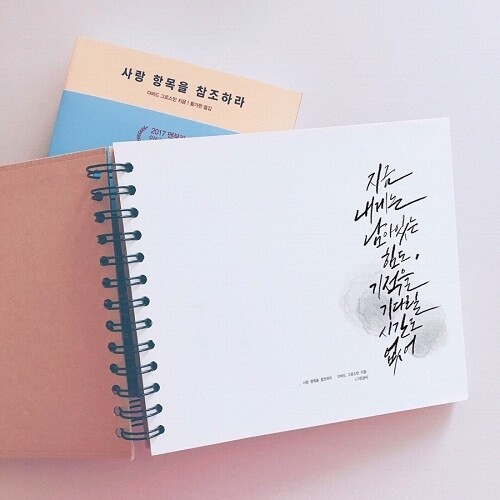 사랑 항목을 참조하라
다비드 그로스만 지음 | 황가한 옮김
2017 맨부커
지금
내게는
남아있는
힘도,
기적을
기다릴
시간도
없어
사랑 항목을 참조하라 다비드 그로스만 지음